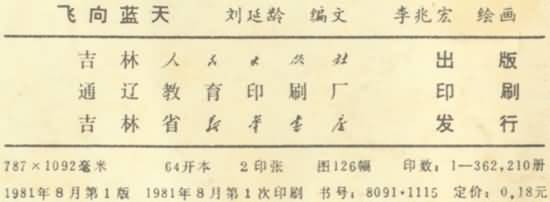 飞向蓝天 刘延龄 编文 李兆宏 绘画
吉林人民出版社 出版
通辽教育印刷厂 印刷
吉林省新华书店 发行
787×1092毫米 64开本 2印张 图126幅 印数：1—362,210册
1981年8月第1版 1981年8月第1次印刷 书号：8091·1115 定价：0.18元